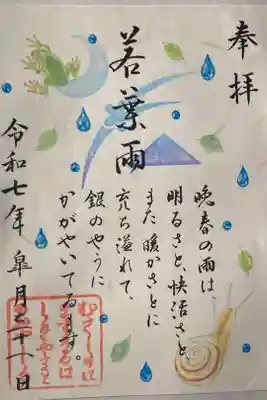 奉拝
若葉雨
晩春の雨は、
明るさと、快活さと、
また 暖かさとに
充ち溢れて、
銀のやうに
かがやいてゐます。
令和七年 皐月 十一日